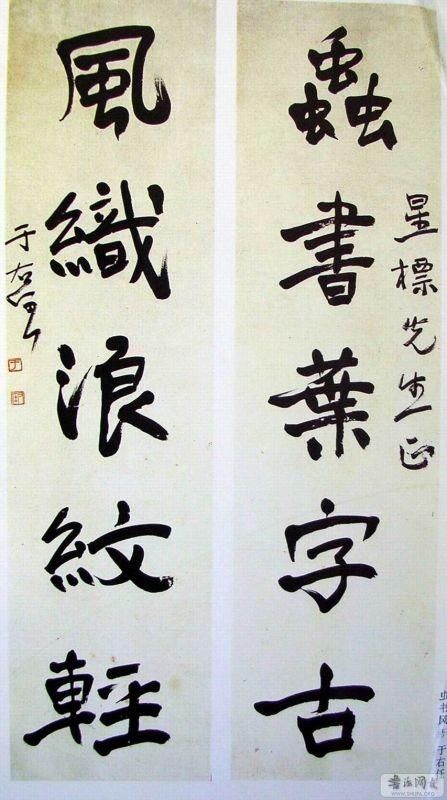 星標先生正
蟲書葉字古
風織浪紋輕
于右任
虫书风
于右任
书法网
WWW.SHUFA.ORG